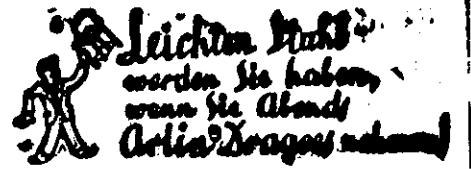 Leichten Stuhl
werden Sie haben,
wenn Sie Abends
Arlin'Dragees nehmen!